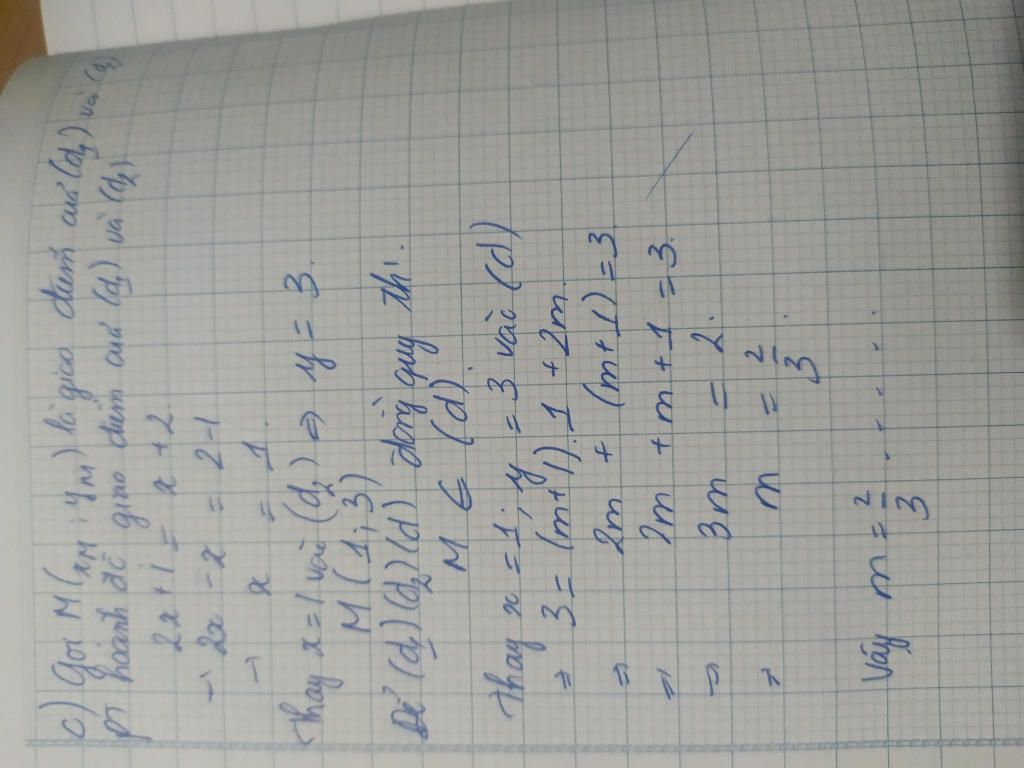 c) Gọi M(xM; yM) là giao điểm của (d1) và (d2)
pt hoành độ giao điểm của (d1) và (d2)
2x + 1 = x + 2
→ 2x - x = 2 - 1
→ x = 1.
Thay x = 1 vào (d2) ⇒ y = 3.
M(1; 3)
Để (d1)(d2)(d) đồng quy thì.
M ∈ (d).
Thay x = 1; y = 3 vào (d)
⇒ 3 = (m+1).1 + 2m.
⇒ 2m + (m+1) = 3
⇒ 2m + m + 1 = 3.
⇒ 3m = 2.
⇒ m = 2/3.
Vậy m = 2/3 . . . . .